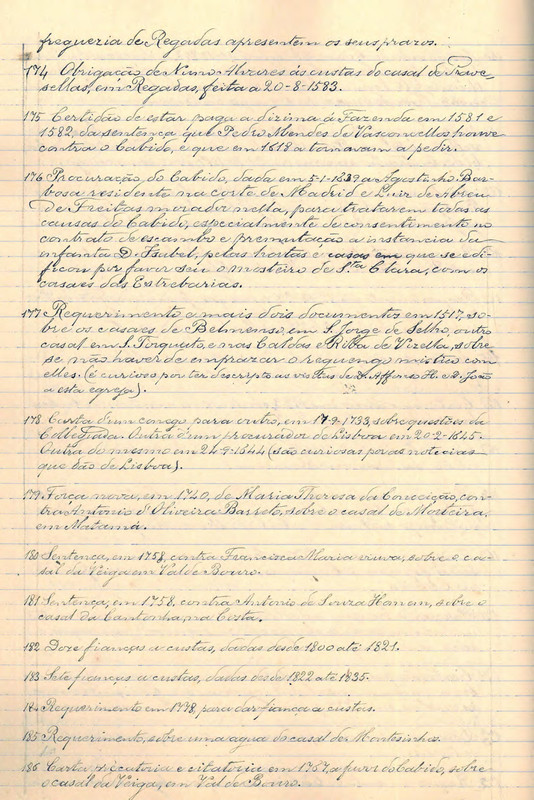 freguezia de Regadas apresentem os seus prazos.
174 Obrigação de Nuno Alvares ás custas do casal de Trave-
sellas, em Regadas, feita a 20-8-1583.
175 Certidão de estar paga a dizima á Fazenda em 1581 e
1582, da sentença que Pedro Mendes de Vasconcellos houve
contra o Cabido, e que em 1612 a tornavam a pedir.
176 Procuração do Cabido, dada em 5-1-1639 a Agostinho Bar-
bosa residente na corte de Madrid e Luiz de Abreu
de Freitas morador nella, para tratarem todas as
causas do Cabido, especialmente de consentimento no
contrato de escambo e premutação a instancia da
infanta D. Isabel, pelas hortas e casas em que se edi-
ficou por favor seu o mosteiro de Sta Clara, com os
casaes das Estrebarias.
177 Requerimento e mais dois documentos em 1517, so-
bre os casaes de Belmenso, em S. Jorge de Selho, outro
casal em S. Torquato, e nas Caldas e Riba de Vizella, sobre
se não haver de emprazar o reguengo mistico com
elles. (é curioso por ter descripto as de D. Affonso H. e D. João
a esta egreja).
178 Carta d'um conego para outro, em 17-9-1733, sobre questões da
Collegiada. Outra d'um procurador de Lisboa em 20-2-1645.
Outra do mesmo em 24-9-1544 (são curiosas por as noticias
que dão de Lisboa).
179 Força nova, em 1740, de Maria Thereza da Conceição, con-
tra Antonio d'Oliveira Barreto, sobre o casal de Mosteiro,
em Matamá.
180 Sentença, em 1758, contra Francisca Maria viuva, sobre o ca-
sal da Veiga em Val de Bouro.
181 Sentença, em 1758, contra Antonio de Souza Homem, sobre o
casal da Cantonha, na Costa.
182 Doze fianças a custas, dadas desde 1800 até 1821.
183 Sete fianças a custas, dadas desde 1822 até 1835.
184 Requerimento em 1778, para dar fiança a custas.
185 Requerimento, sobre uma agua do casal de Montesinhos.
186 Carta precatoria e citatoria em 1757, a favor do Cabido, sobre
o casal da Veiga, em Val de Bouro.